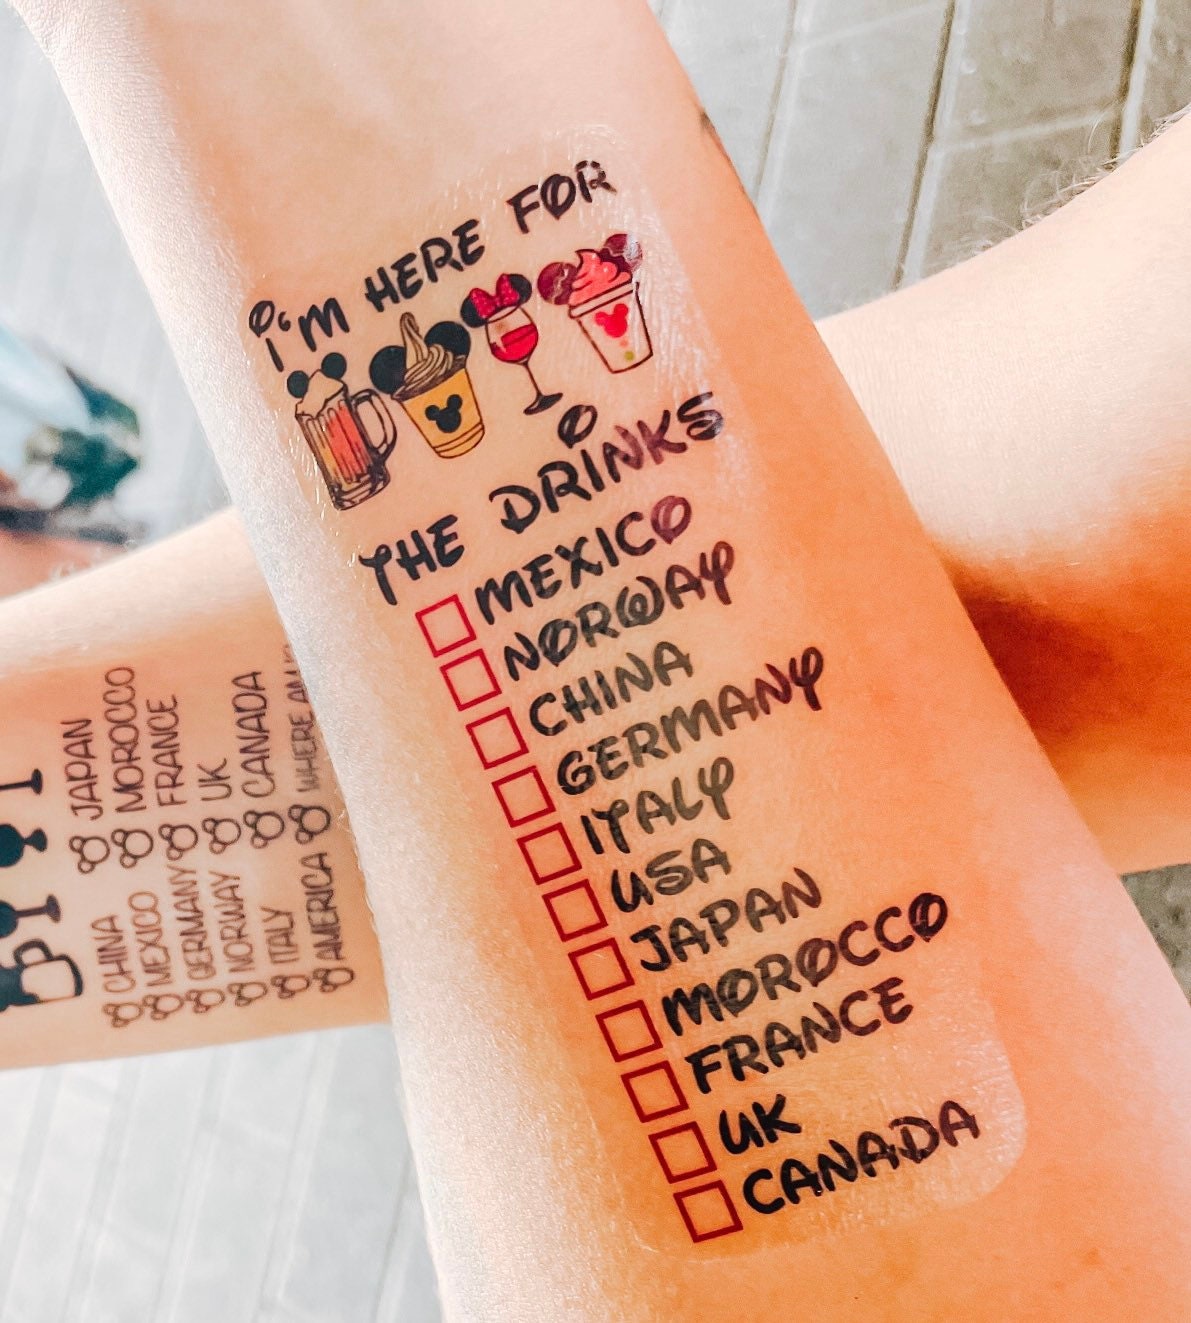 I'M HERE FOR
THE DRINKS
MEXICO
NORWAY
CHINA
GERMANY
ITALY
USA
JAPAN
MOROCCO
FRANCE
UK
CANADA
JAPAN
MOROCCO
FRANCE
UK
CANADA
WHERE AM I
CHINA
MEXICO
GERMANY
NORWAY
ITALY
AMERICA